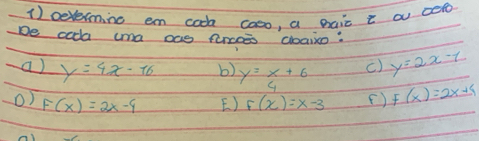 1) Determino em cada caso, a raiz e ou zero
De cada uma das funções abaixo:
a) y = 4x - 16 b) y = x + 6 c) y = 2x - 1
4
D) F(x) = 2x - 9 E) F(x) = x - 3 F) F(x) = 2x + 4